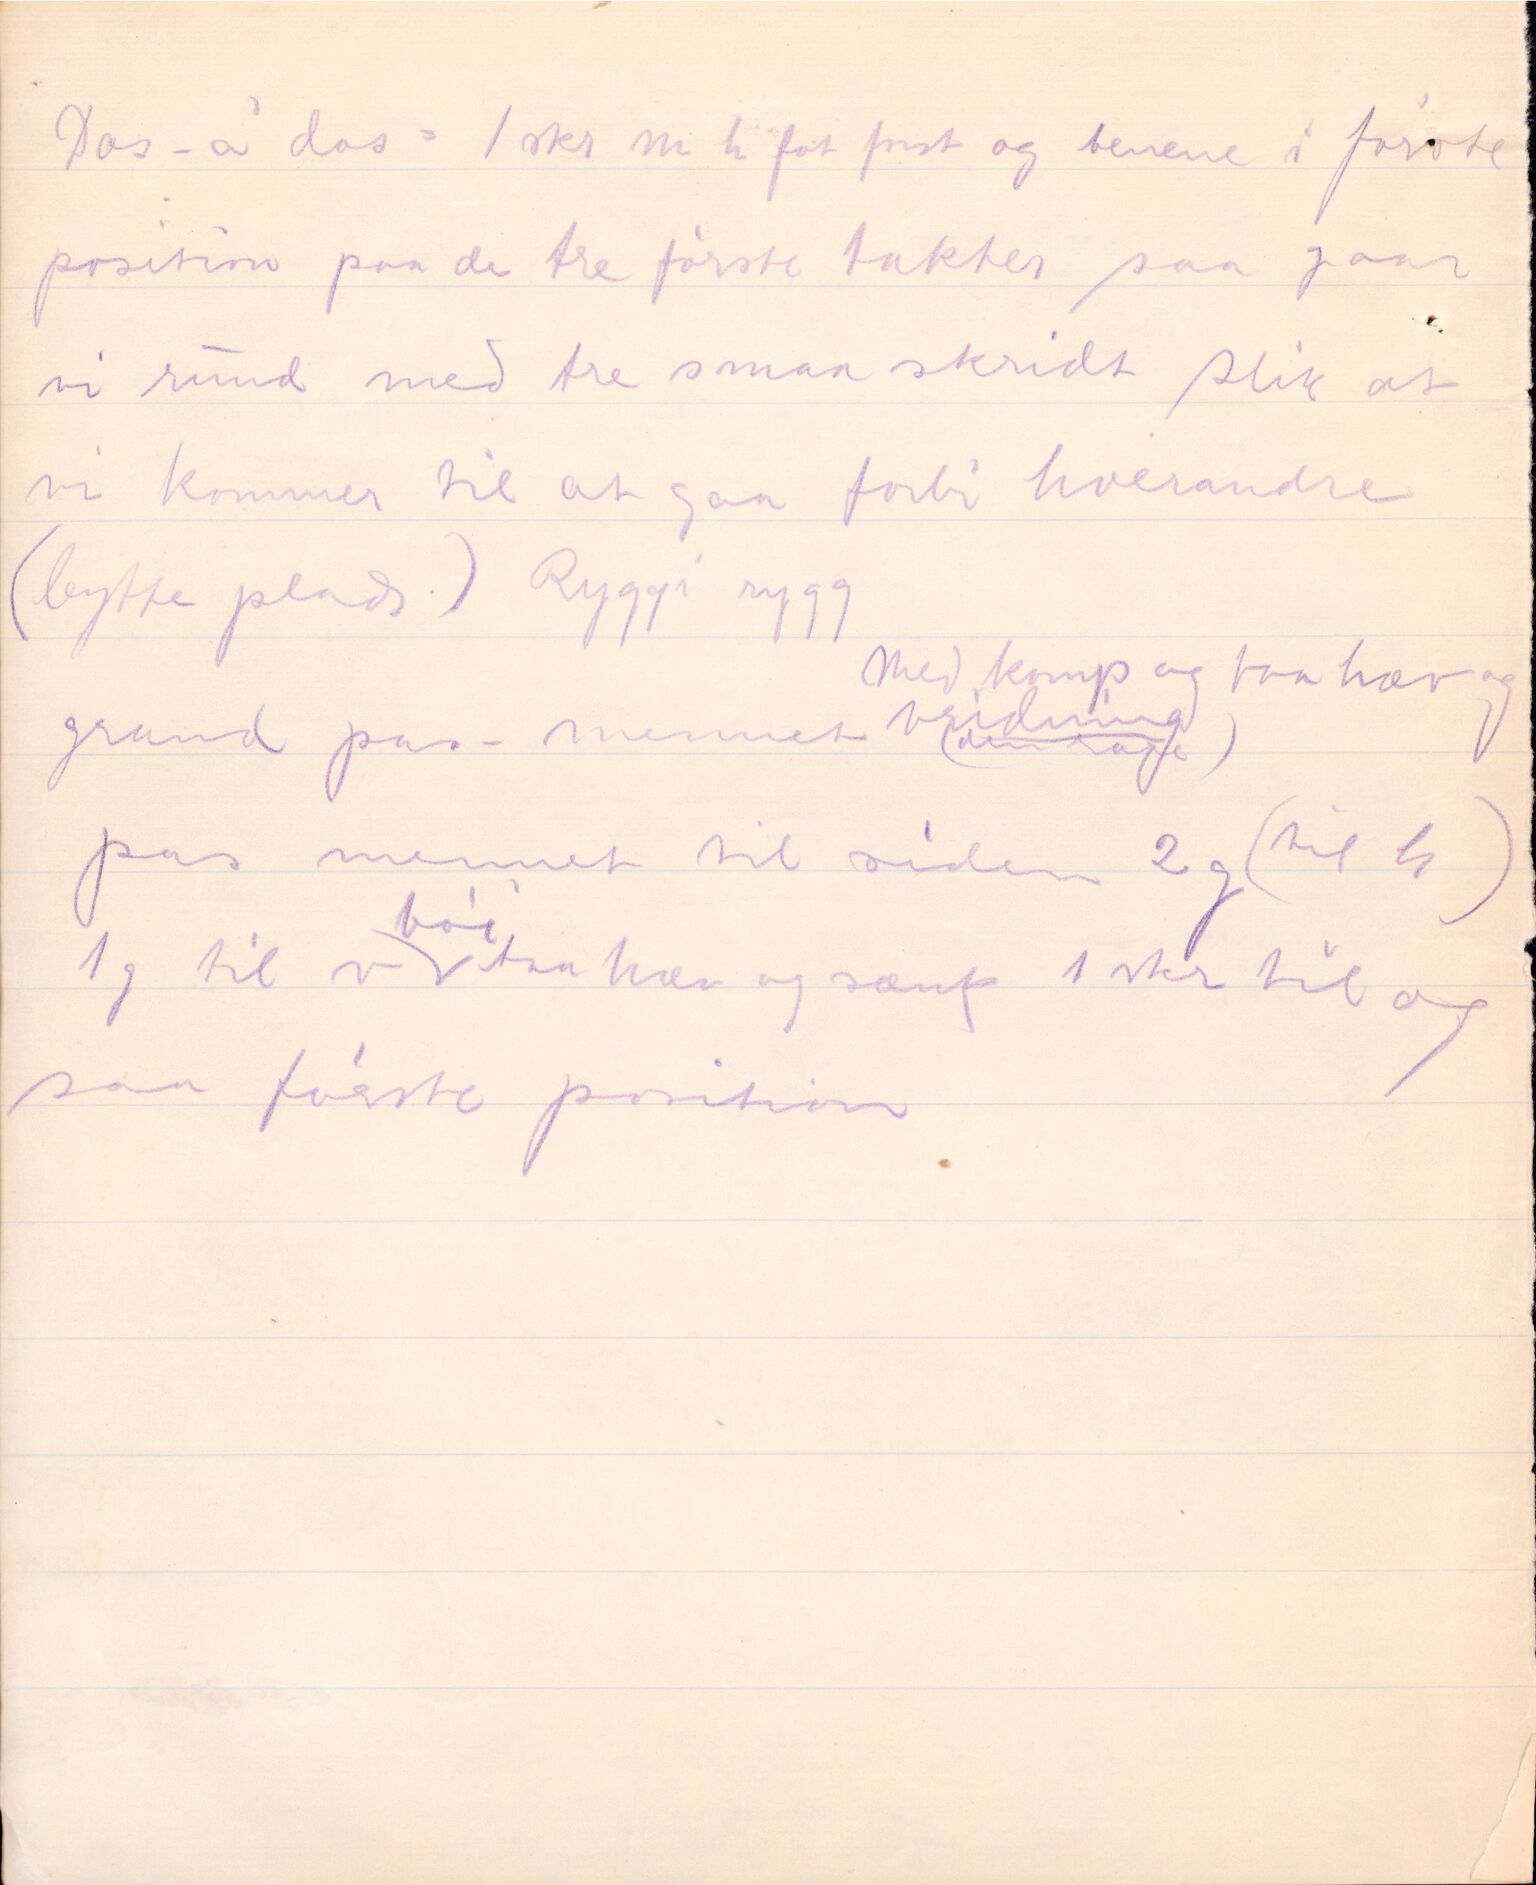 Dos-à dos = 1 skr m h fot først og benene i første
position paa de tre første takter saa gaar
vi rund med tre smaa skridt slik at
vi kommer til at gaa forbi hverandre
(bytte plads.) Rygg i rygg
Med komp og taa hæv og
grand pas-menuet vridning
pas menuet til siden 2 g (til h)
bøi
1 g til v taa hæv og sænk 1 skr til og
saa første position